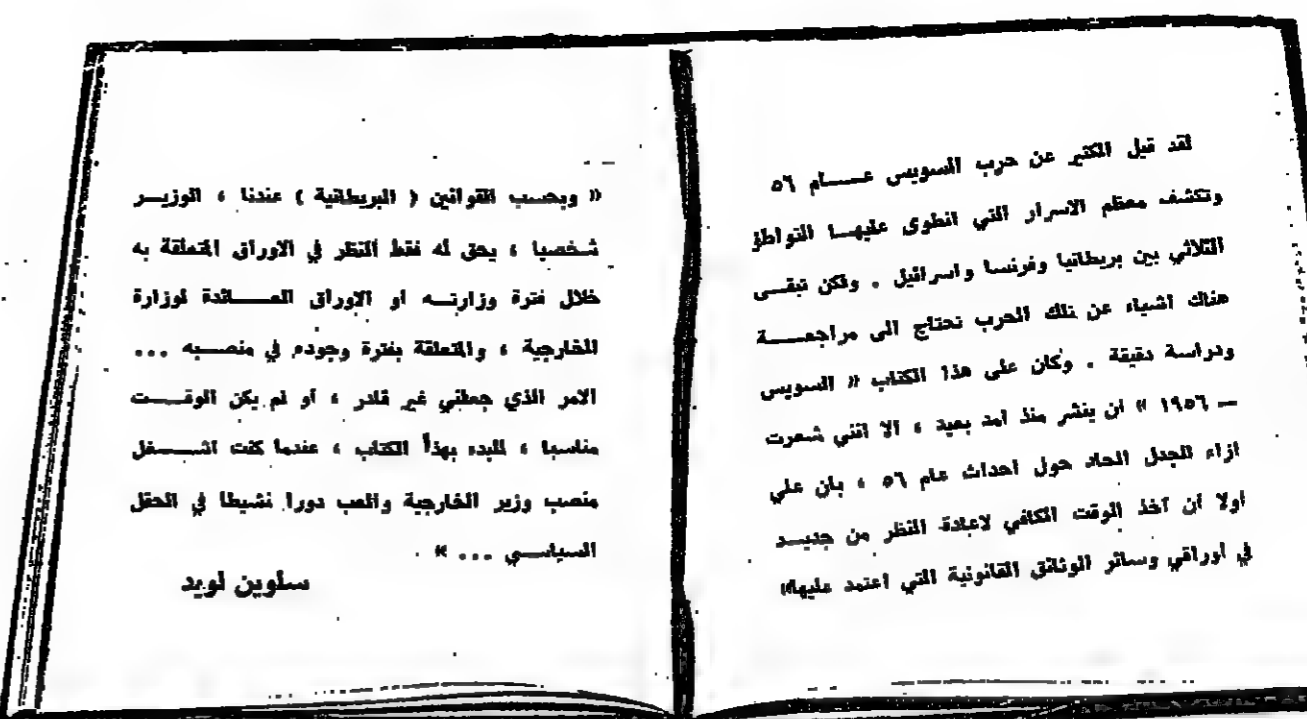 لقد قيل الكثير عن حرب السويس عام ٥٦
وتكشف معظم الاسرار التي انطوى عليها التواطؤ
الثلاثي بين بريطانيا وفرنسا واسرائيل . ولكن تبقى
هناك اشياء عن تلك الحرب تحتاج الى مراجعة
ودراسة دقيقة . وكان على هذا الكتاب « السويس
— ١٩٥٦ » ان ينشر منذ امد بعيد ، الا انني شعرت
ازاء الجدل الحاد حول احداث عام ٥٦ ، بان علي
اولا ان آخذ الوقت الكافي لاعادة النظر من جديد
في اوراقي وسائر الوثائق القانونية التي اعتمد عليها»
« وبحسب القوانين ( البريطانية ) عندنا ، الوزير
شخصيا ، يحق له فقط النظر في الاوراق المتعلقة به
خلال فترة وزارته او الاوراق العائدة لوزارة
الخارجية ، والمتعلقة بفترة وجوده في منصبه ...
الامر الذي جعلني غير قادر ، او لم يكن الوقت
مناسبا ، للبدء بهذا الكتاب ، عندما كنت اشغل
منصب وزير الخارجية والعب دورا نشيطا في الحقل
السياسي ... »
سلوين لويد